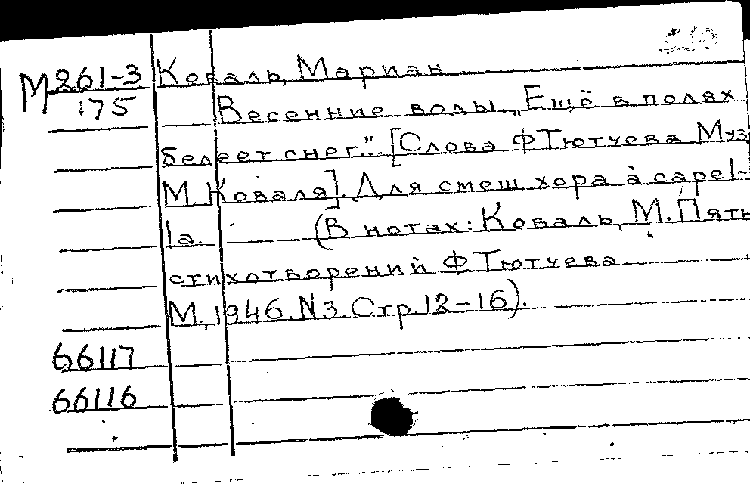 М 261-3 Коваль, Мариан
175 Весенние воды. „Ещё в полях
белеет снег." [Слова Ф Тютчева Муз
М. Коваля]. Для смеш. хора а capel-
la. (В нотах: Коваль, М. Пять
стихотворений Ф Тютчева
М., 1946. N3. Стр. 12-16).
66117
66116